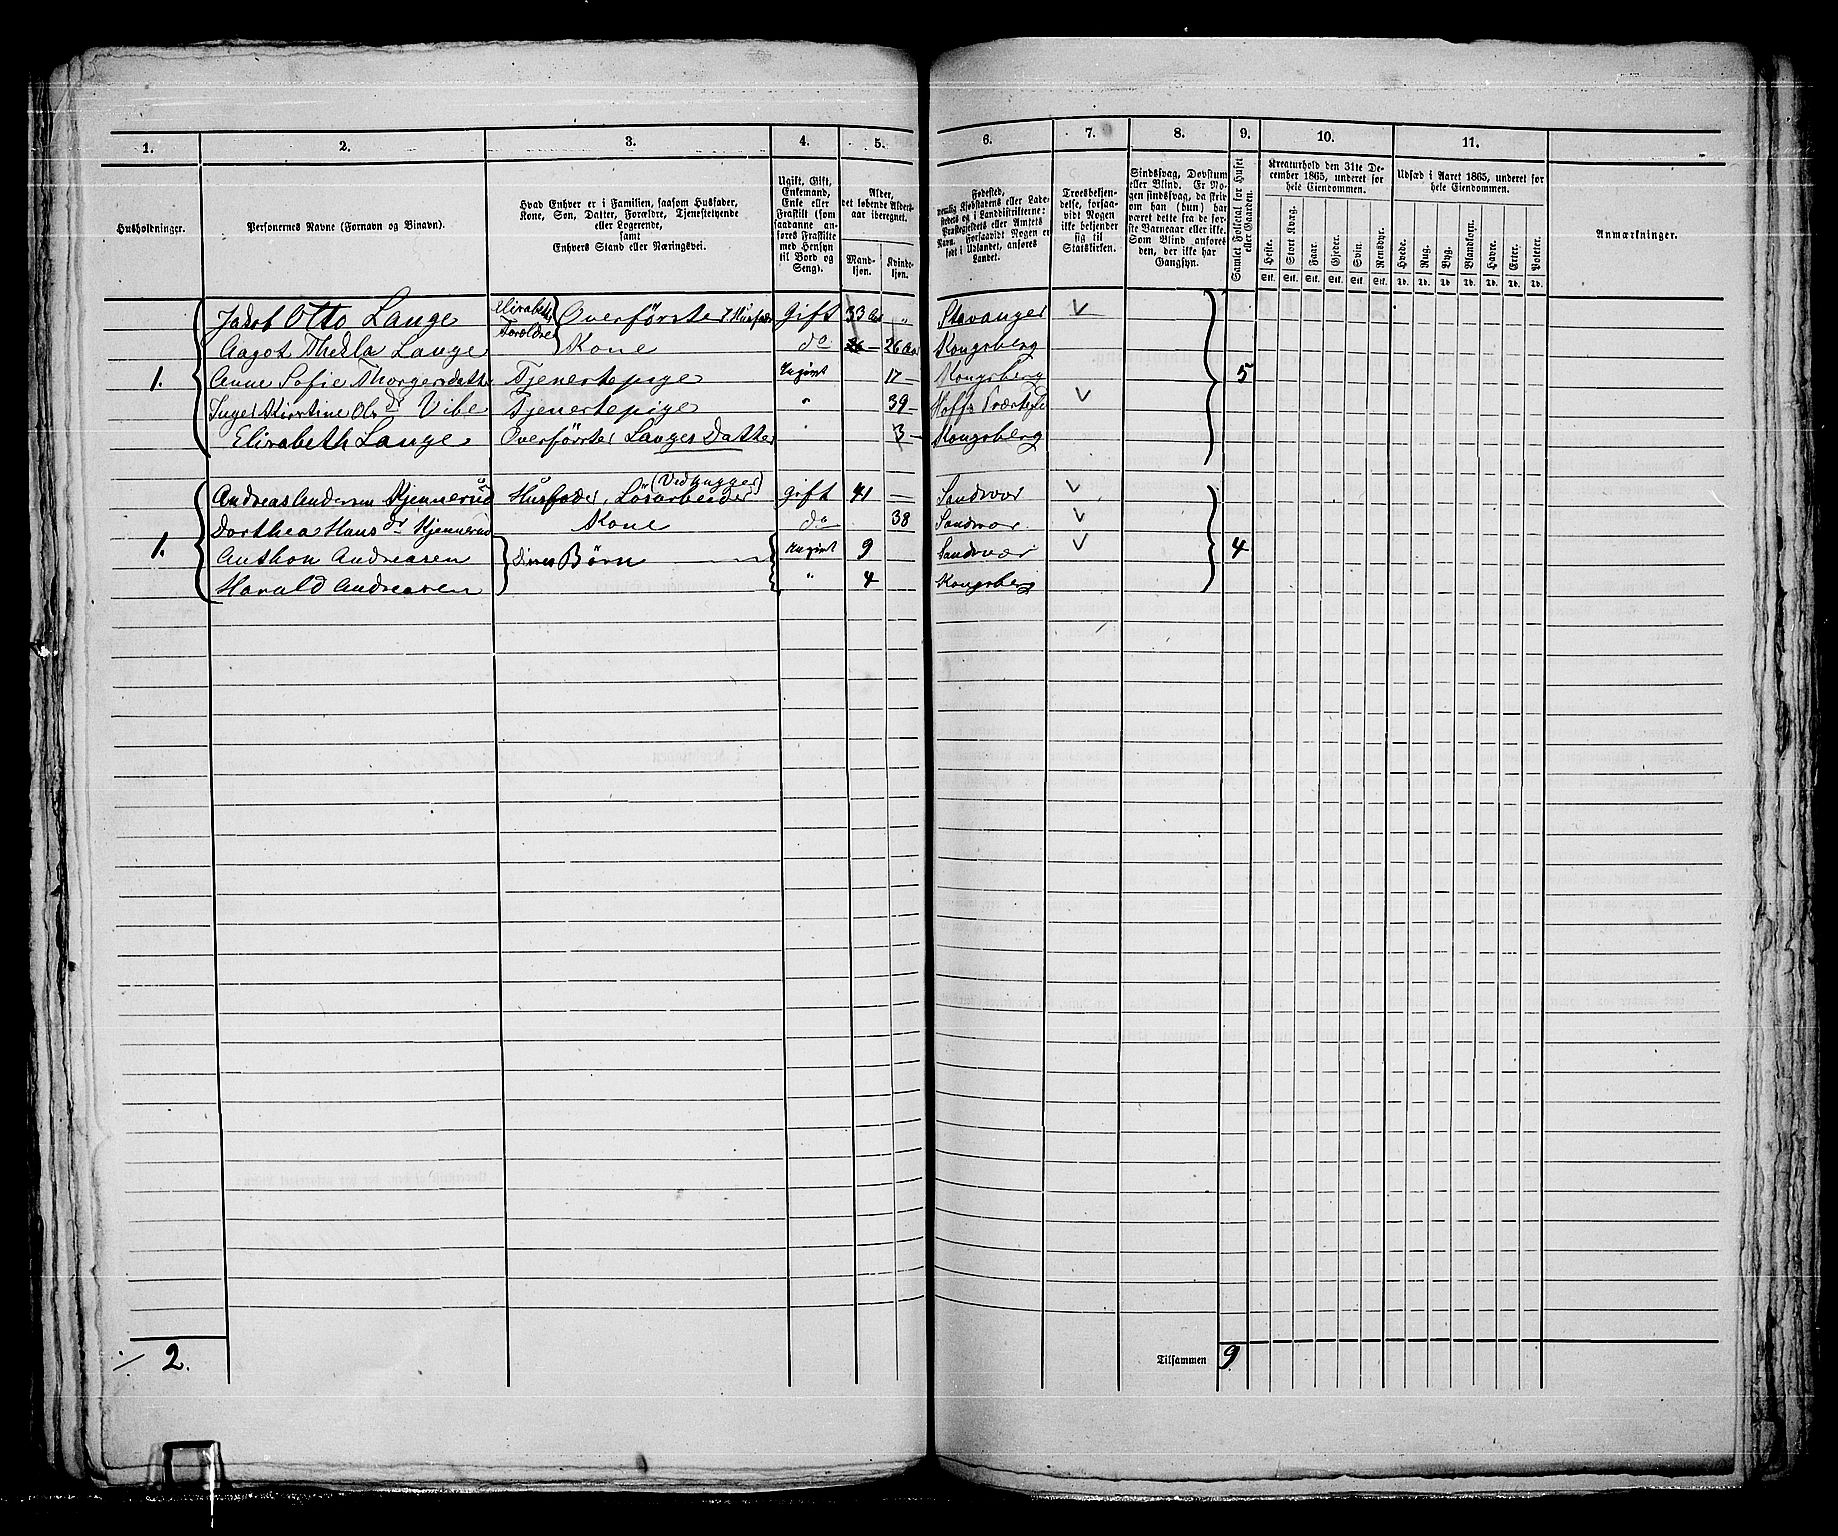 1. 2. 3. 4. 5. 6. 7. 8. 9. 10. 11.
Husholdninger.
Personernes Navne (Fornavn og Binavn).
Hvad Enhver er i Familien, saasom Husfader,
Kone, Søn, Datter, Forældre, Tjenestetyende
eller Logerende,
samt
Enhvers Stand eller Næringsvei.
Ugift, Gift,
Enkemand,
Enke eller
Fraskilt (som
saadanne an-
føres Fraskilte
med Hensyn
til Bord og
Seng).
Alder,
det løbende Alders-
aar iberegnet.
Mand-
kjøn.
Kvinde-
kjøn.
Fødested,
nemlig Kjøbstadens eller Lade-
stedets og i Landdistrikterne:
Præstegjeldets eller Amtets
Navn. Forsaavidt Nogen er
født i Udlandet, anføres
Landet.
Troesbekjen-
delse, forsaa-
vidt Nogen
ikke bekjender
sig til
Statskirken.
Sindssvag, Døvstum
eller Blind. Er No-
gen sindssvag, da skri-
ves om han (hun) har
været dette fra de før-
ste Barneaar eller ikke.
Som Blind anføres
den, der ikke har
Gangsyn.
Samlet Folketal for Huset
eller Gaarden.
Kreaturhold den 31te De-
cember 1865, underet for
hele Eiendommen.
Heste. Stort Kvæg. Faar. Gjeder. Svin. Rensdyr.
Stk. Stk. Stk. Stk. Stk. Stk.
Udsæd i Aaret 1865, underet for
hele Eiendommen.
Hvede. Rug. Byg. Blandkorn. Havre. Erter. Poteter.
Td. Td. Td. Td. Td. Td. Td.
Anmærkninger.
Jacob Otto Lange Elisabeths Forældre Overførster, Husfader Gift 33 Aar " Stavanger
Aagot Thekla Lange Kone do 26 Aar Kongsberg
1. Anne Sofie Thorgersdatter Tjenestepige Ugivt 17 Kongsberg 5
Inger Kistine Olsdr Vibe Tjenestepige " 39
Elisabeth Lange Overførster Langes Datter " 3 Kongsberg
Andreas Andersen Kjennerud Husfader, Løsarbeider (Vedhugger) Gift 41 Sandsvær
Dorthea Hansdr Kjennerud Kone do 38 Sandsvær
1. Anthon Andreasen Deres Børn Ugivt 9 Sandsvær 4
Harald Andreasen " 4 Kongsberg
2. Tilsammen 9